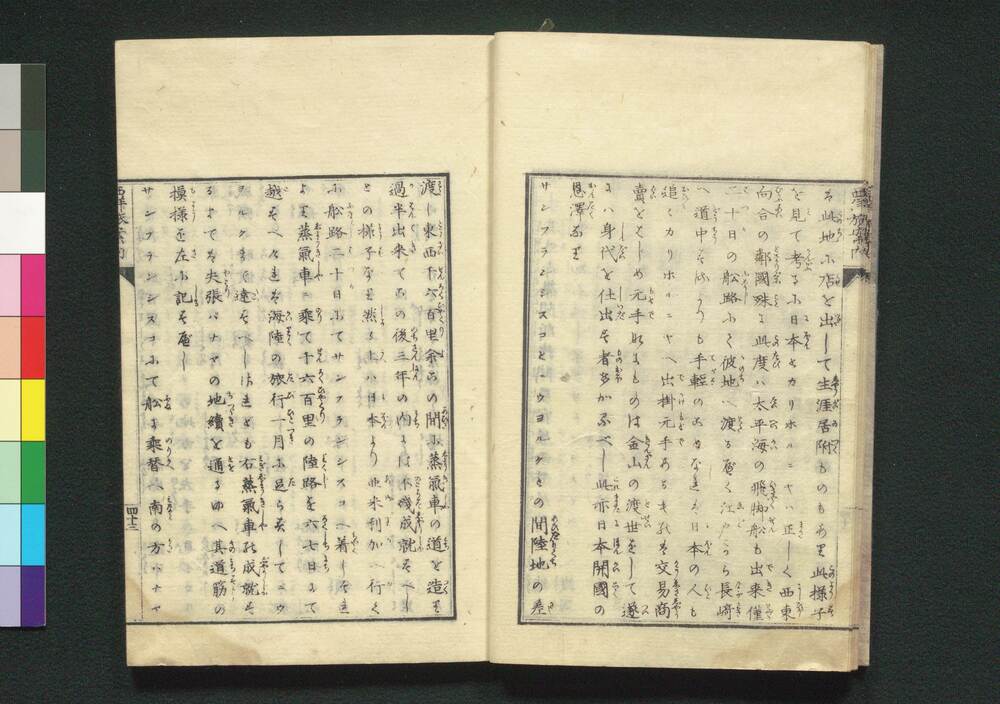 る此地に店を出して生涯居附ものもあり此様子
を見て考るに日本とカリホルニヤハ正しく西東
向合の鄰國殊に此度ハ太平海の飛脚船も出来僅
二十日の舩路にて彼地へ渡る程く江戸から長崎
へ道中するよりも手輕のことなれバ日本の人も
追々カリホルニヤヘ出掛元手あるものハ交易商
賣をとしめ元手なきものは金山の渡世をして遂
にハ身代を仕出す者多かるべし此亦日本開國の
恩澤なり
サンフランシスコとニウヨルクとの間陸地の差
渡し東西千六百里余この間に蒸氣車の道を造り
過半出来てこの後三年の内には不殘成就すべし
との様子なり然る上ハ日本より亜米利加へ行く
に舩路二十日にてサンフランシスコへ着しそれ
より蒸氣車に乗て千六百里の陸路を六七日にて
越すべくれバ海陸の旅行一月に足らずしてニウ
ヨルクまで達すべしけれども右蒸氣車の成就す
るまでは矢張パナマの地續を通るゆへ其道筋の
模様を左に記す程し
サンフランシスコにて舩に乗替へ南の方パナマ
四十三